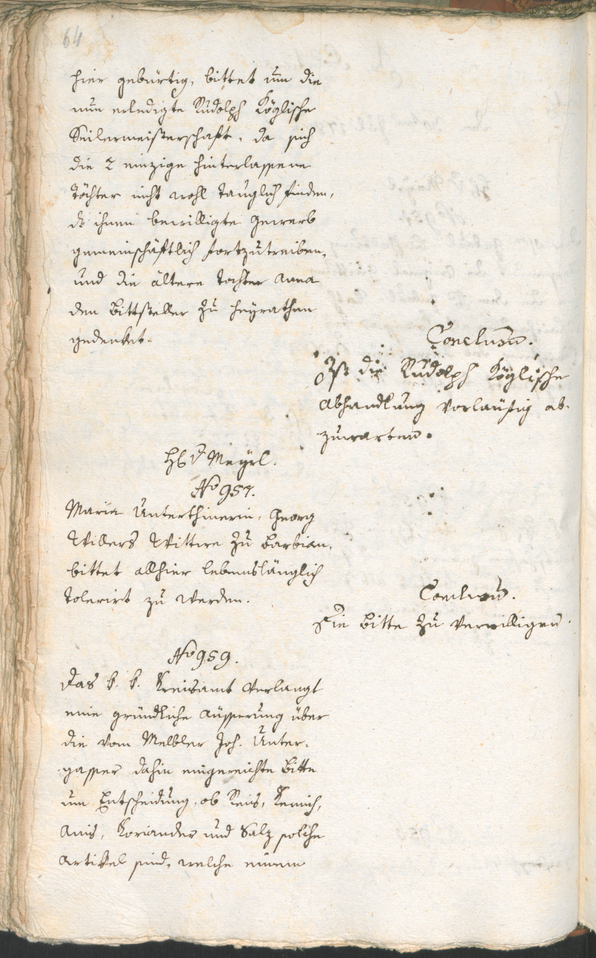 64
hier gebürtig, bittet um die
nun erledigte Rudolph Köglische
Seilermeisterschaft, da sich
die 2 einzige hinterlassene
Töchter nicht wohl tauglich finden,
ds ihnen bewilligte Gewerb
gemeinschäftlich fortzutreiben,
und die ältere Tochter Anna
den Bittsteller zu heyrathen
gedenket.
Conclusum.
Ist die Rudolph Köglische
Abhandlung vorläufig ab-
zuwarten.
H. v Mayrl.
No 957.
Maria Unterthinerin, Georg
Wittwe zu Barbian,
bittet allhier lebenslänglich
tolerirt zu werden.
Conclusum.
Die Bitte zu verwilligen.
No 959.
Das k. k. Kreisamt verlangt
eine gründliche Äusserung über
die vom Melbler Joh. Unter-
gasser dahin eingereichte Bitte
um Entscheidung, ob Reis,
Anis, Koriander und Salz solche
Artikel sind, welche einem